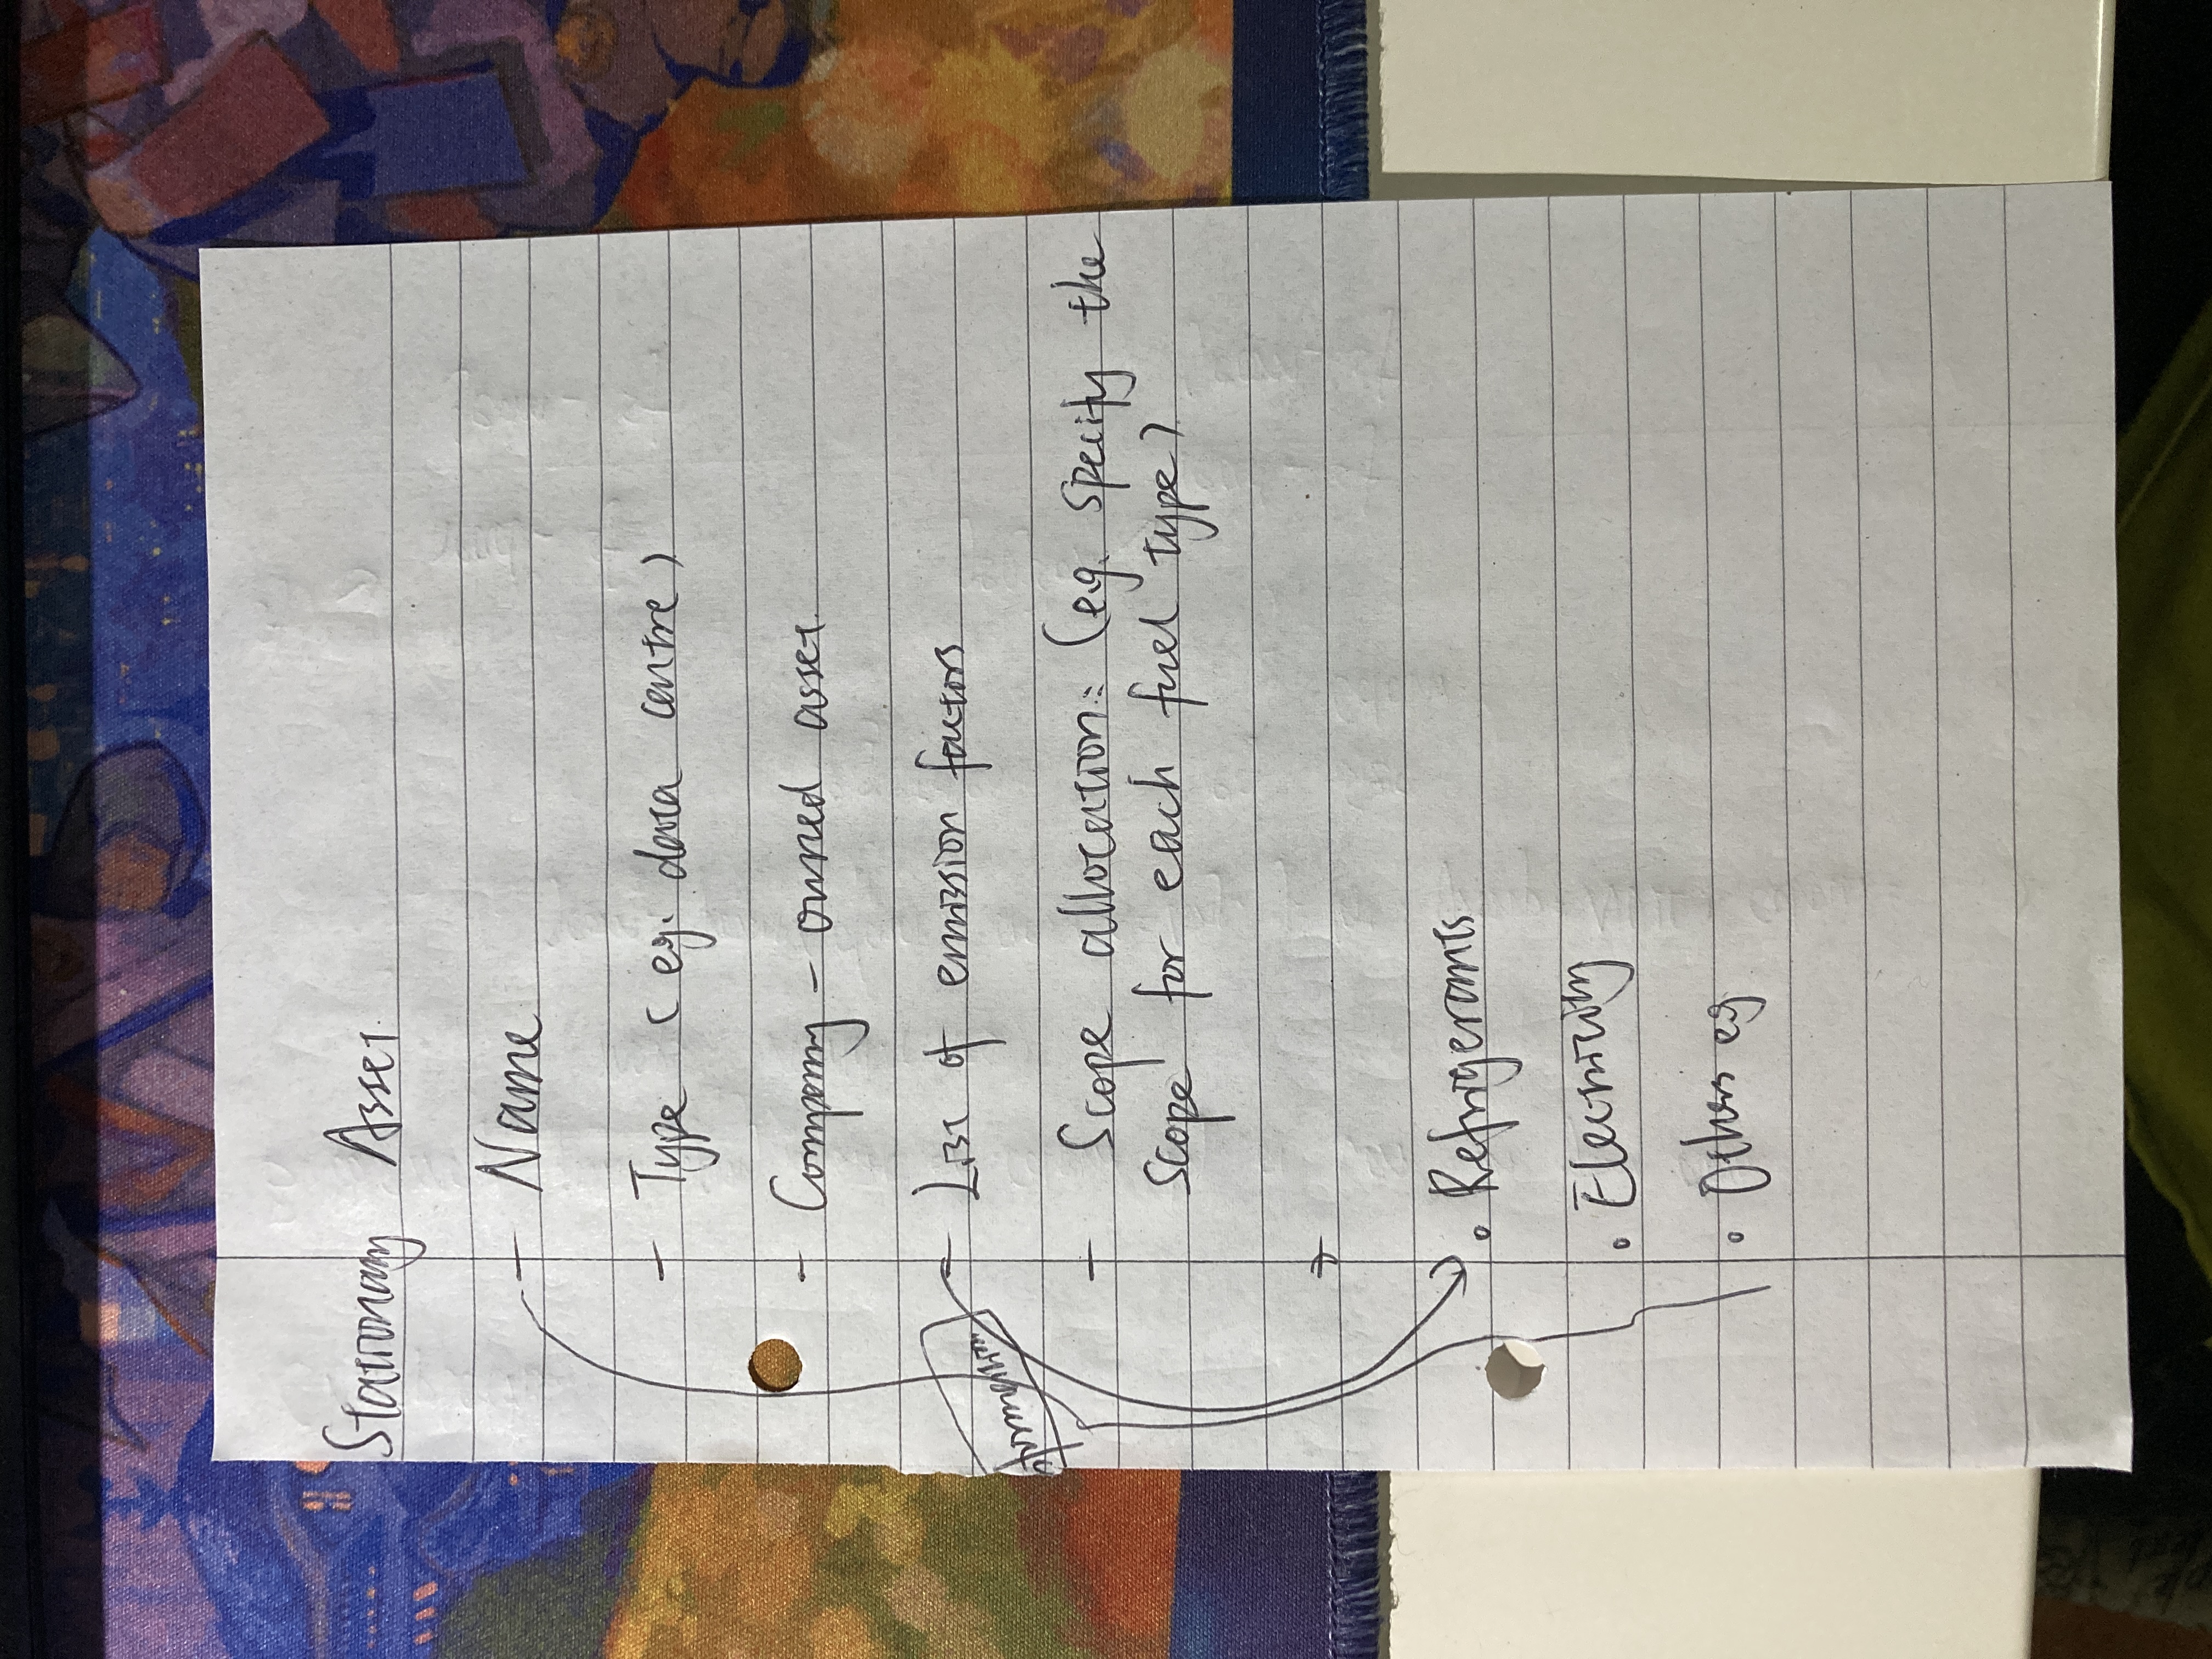 Stationary Asset.
- Name
- Type (eg. data centre)
- Company - owned asset.
- List of emission factors
- Scope allocation: (eg. specify the
scope for each fuel type)
• Refrigerants
• Electricity
• Others eg